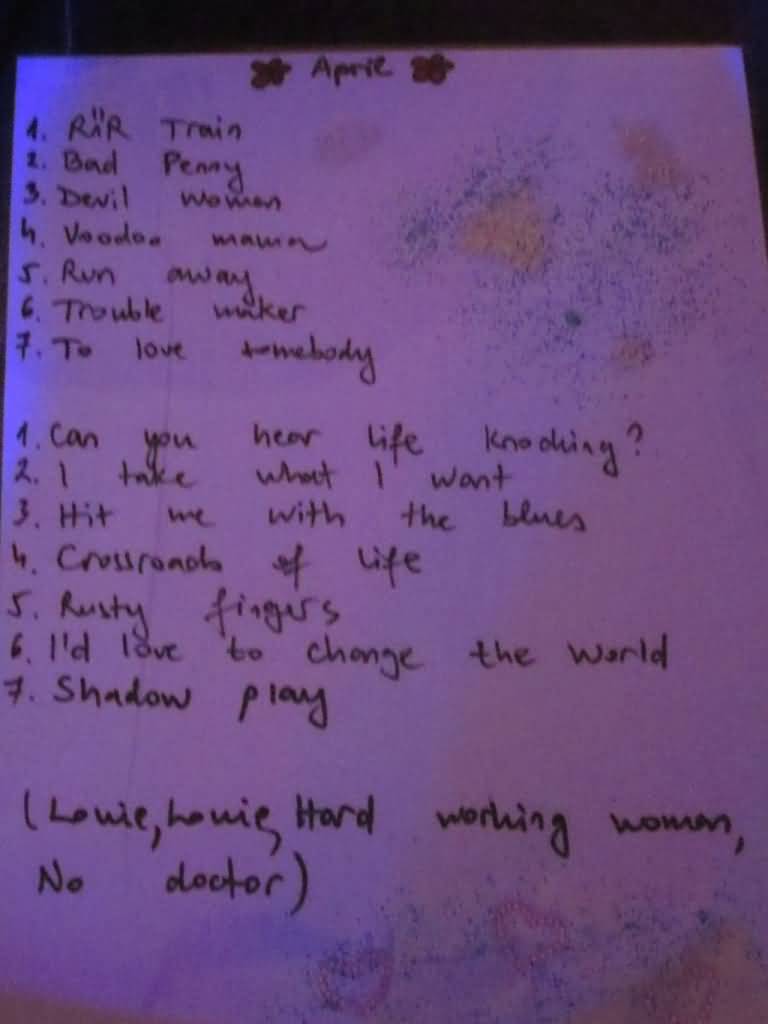 April
1. R'n'R Train
2. Bad Penny
3. Devil woman
4. Voodoo mama
5. Run away
6. Trouble maker
7. To love somebody
1. Can you hear life knocking?
2. I take what I want
3. Hit me with the blues
4. Crossroads of life
5. Rusty fingers
6. I'd love to change the world
7. Shadow play
(Louie, Louie, Hard working woman,
No doctor)